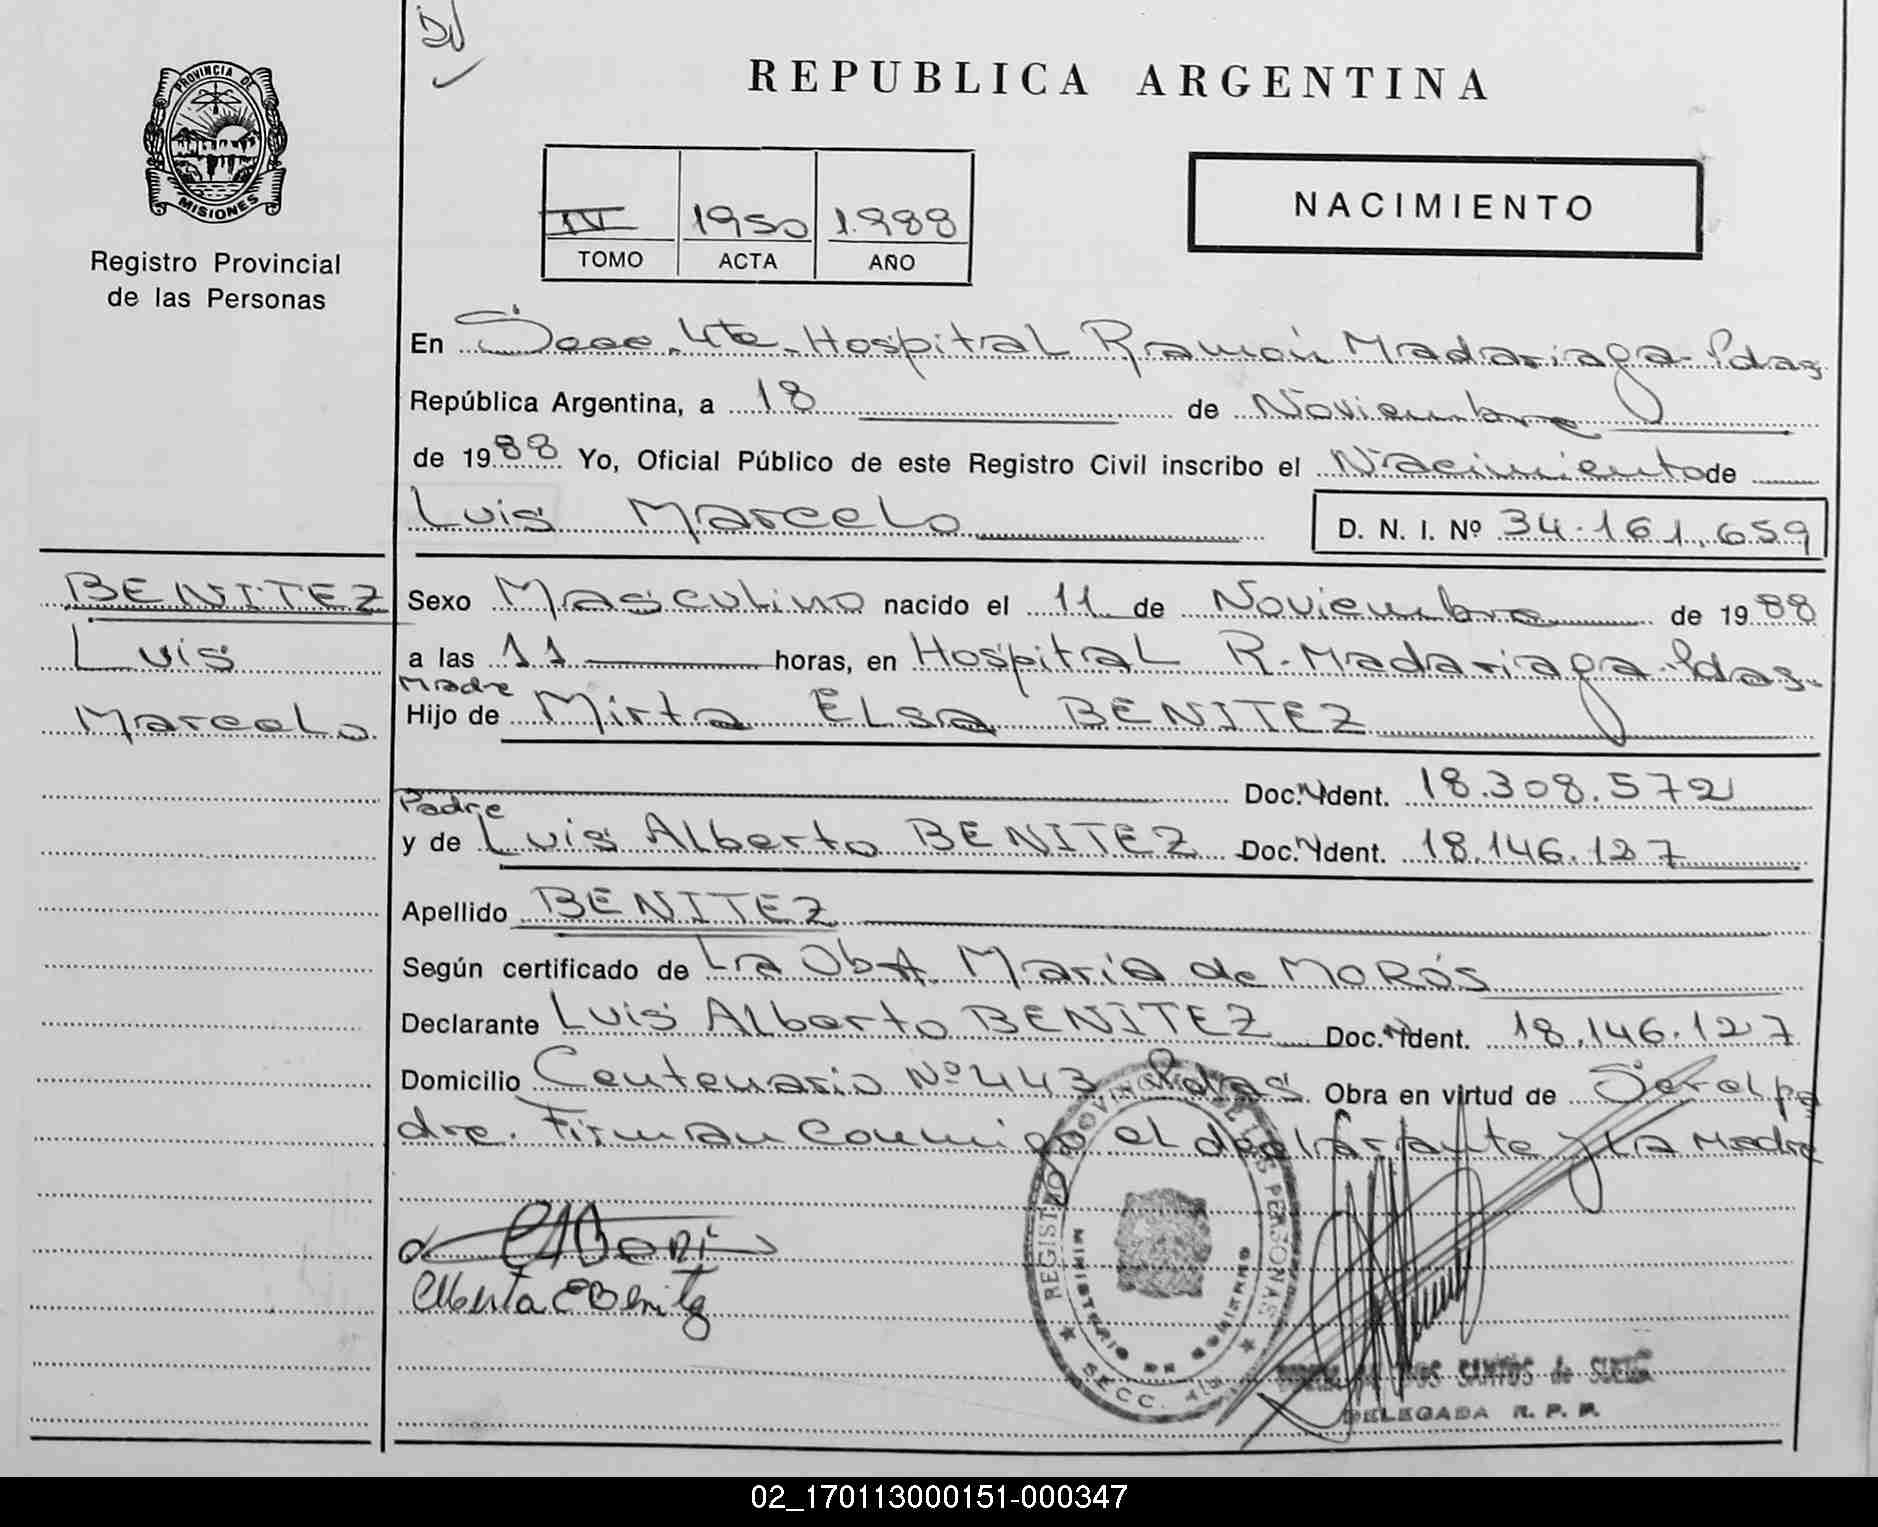 DV
REPUBLICA ARGENTINA
PROVINCIA DE
MISIONES
Registro Provincial
de las Personas
IV 1950 1.988
TOMO ACTA AÑO
NACIMIENTO
En Secc. 4ta. Hospital Ramón Madariaga - Pdas
República Argentina, a 18 de Noviembre
de 1988 Yo, Oficial Público de este Registro Civil inscribo el Nacimiento de
Luis Marcelo D. N. I. Nº 34.161.659
BENITEZ
Luis
Marcelo
Sexo Masculino nacido el 11 de Noviembre de 1988
a las 11 horas, en Hospital R. Madariaga - Pdas.
Madre
Hijo de Mirta Elsa BENITEZ
Doc. Ident. 18.308.572
Padre
y de Luis Alberto BENITEZ Doc. Ident. 18.146.127
Apellido BENITEZ
Según certificado de La ObA María de MORÓS
Declarante Luis Alberto BENITEZ Doc. Ident. 18.146.127
Domicilio Centenario Nº 443 Pdas Obra en virtud de Ser el pa
dre. Firman conmigo el declarante y la Madre
REGISTRO PROVINCIAL DE LAS PERSONAS
MINISTERIO DE GOBIERNO
SECC. 4ta
SANTOS de
DELEGADA R. P. P.
02_170113000151-000347